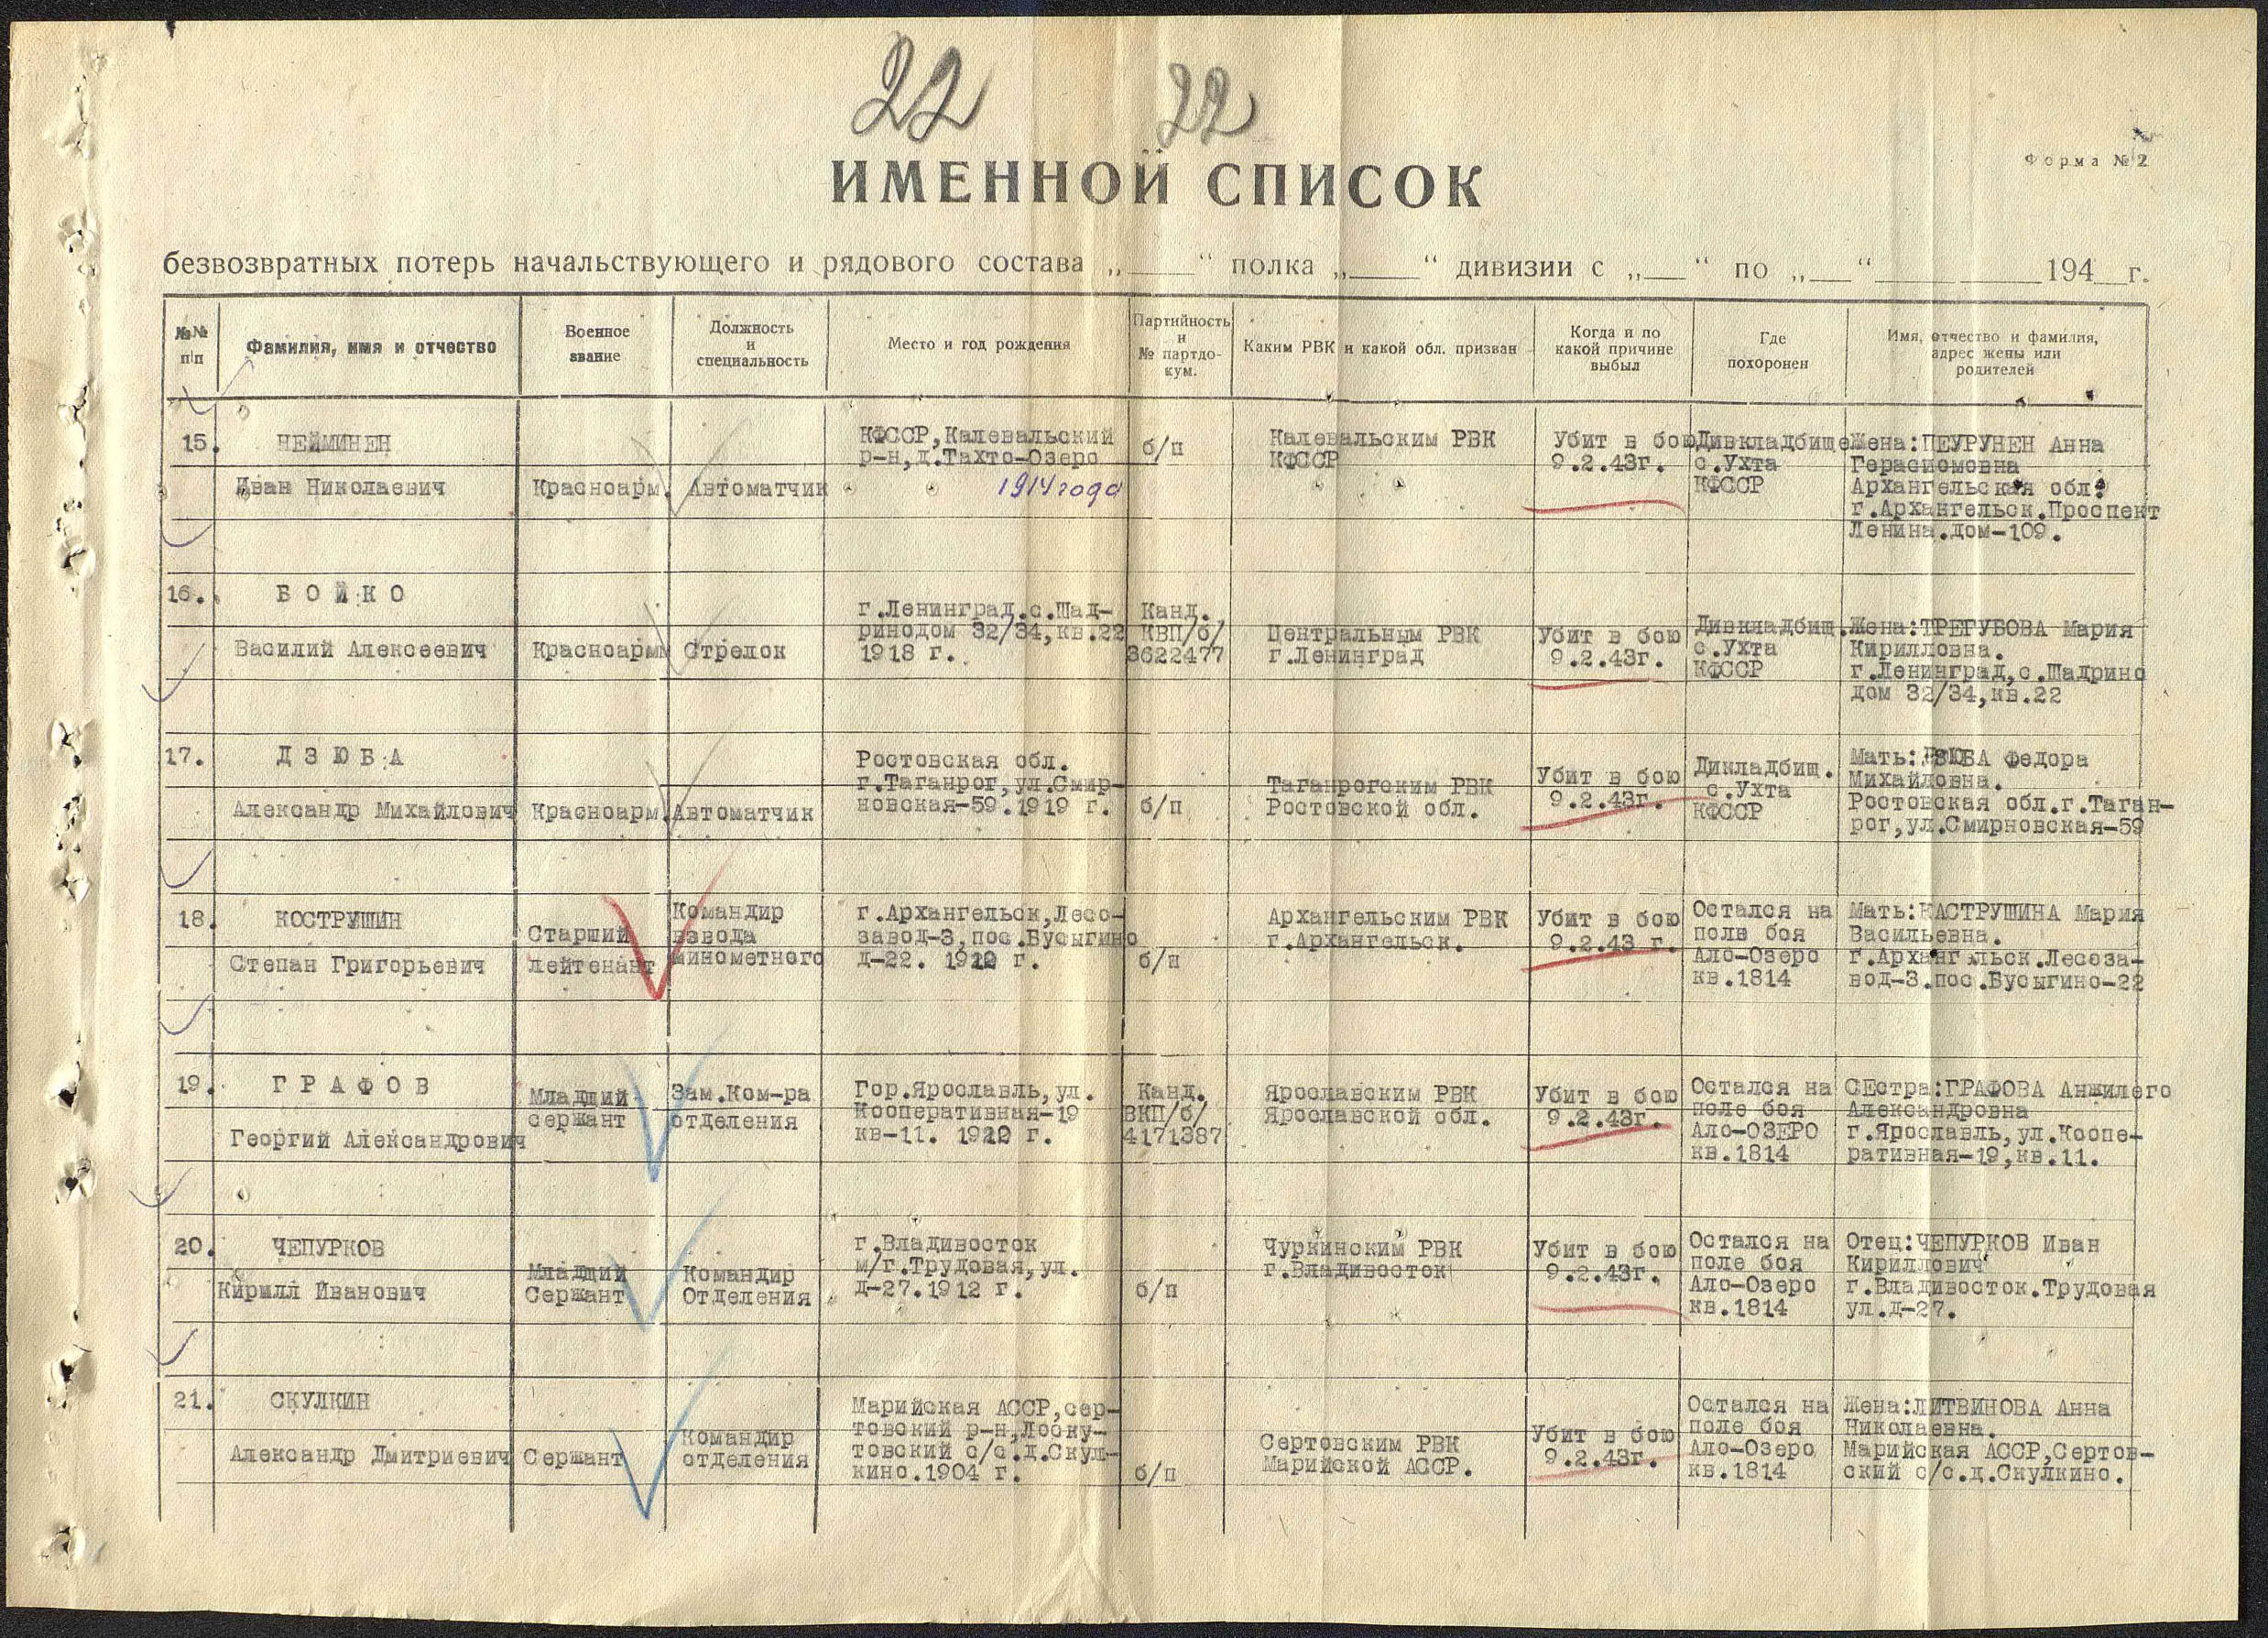 22 22
Форма № 2
ИМЕННОЙ СПИСОК
безвозвратных потерь начальствующего и рядового состава „___“ полка „___“ дивизии с „__“ по „__“ ______ 194__г.
№№
п|п
Фамилия, имя и отчество
Военное
звание
Должность
и
специальность
Место и год рождения
Партийность
и
№ партдо-
кум.
Каким РВК и какой обл. призван
Когда и по
какой причине
выбыл
Где
похоронен
Имя, отчество и фамилия,
адрес жены или
родителей
15.
НЕЙМИНЕН
Иван Николаевич
Красноарм.
Автоматчик
КФССР,Калевальский
р-н,д.Тахто-Озеро
1914 года
б/п
Калевальским РВК
КФССР
Убит в бою
9.2.43г.
Дивкладбище
с.Ухта
КФССР
Жена:ПЕУРУНЕН Анна
Герасиомовна
Архангельская обл.
г.Архангельск.Проспект
Ленина.дом-109.
16.
Б О Й К О
Василий Алексеевич
Красноарм
Стрелок
г.Ленинград.с.Шад-
ринодом 32/34,кв.22
1918 г.
Канд.
КВП/б/
3622477
Центральным РВК
г.Ленинград
Убит в бою
9.2.43г.
Дивкладбищ.
с.Ухта
КФССР
Жена:ТРЕГУБОВА Мария
Кирилловна.
г.Ленинград,с.Шадрино
дом 32/34,кв.22
17.
Д З Ю Б А
Александр Михайлович
Красноарм.
Автоматчик
Ростовская обл.
г.Таганрог,ул.Смир-
новская-59.1919 г.
б/п
Таганрогским РВК
Ростовской обл.
Убит в бою
9.2.43г.
Дикладбищ.
с.Ухта
КФССР
Мать: Федора
Михайловна.
Ростовская обл.г.Таган-
рог,ул.Смирновская-59
18.
КОСТРУШИН
Степан Григорьевич
Старший
лейтенант
Командир
взвода
минометного
г.Архангельск,Лесо-
завод-3,пос.Бусыгино
д-22. г.
б/п
Архангельским РВК
г.Архангельск.
Убит в бою
9.2.43 г.
Остался на
поле боя
Ало-Озеро
кв.1814
Мать:КАСТРУШИНА Мария
Васильевна.
г.Архангльск.Лесоза-
вод-3.пос.Бусыгино-22
19.
Г Р А Ф О В
Георгий Александрович
Младший
сержант
Зам.Ком-ра
отделения
Гор.Ярославль,ул.
Кооперативная-19
кв-11. г.
Канд.
ВКП/б/
4171387
Ярославским РВК
Ярославской обл.
Убит в бою
9.2.43г.
Остался на
поле боя
Ало-ОЗЕРО
кв.1814
СЕстра:ГРАФОВА Анжилего
Александровна
г.Ярославль,ул.Коопе-
ративная-19,кв.11.
20.
ЧЕПУРКОВ
Кирилл Иванович
Младший
Сержант
Командир
Отделения
г.Владивосток
м/г.Трудовая,ул.
д-27.1912 г.
б/п
Чуркинским РВК
г.Владивосток
Убит в бою
9.2.43г.
Остался на
поле боя
Ало-Озеро
кв.1814
Отец:ЧЕПУРКОВ Иван
Кириллович
г.Владивосток.Трудовая
ул.д-27.
21.
СКУЛКИН
Александр Дмитриевич
Сержант
Командир
отделения
Марийская АССР,сер-
товский р-н,Лоску-
товский с/с.д.Скул-
кино.1904 г.
б/п
Сертовским РВК
Марийской АССР.
Убит в бою
9.2.43г.
Остался на
поле боя
Ало-Озеро
кв.1814
Жена:ЛИТВИНОВА Анна
Николаевна.
Марийская АССР,Сертов-
ский с/с.д.Скулкино.